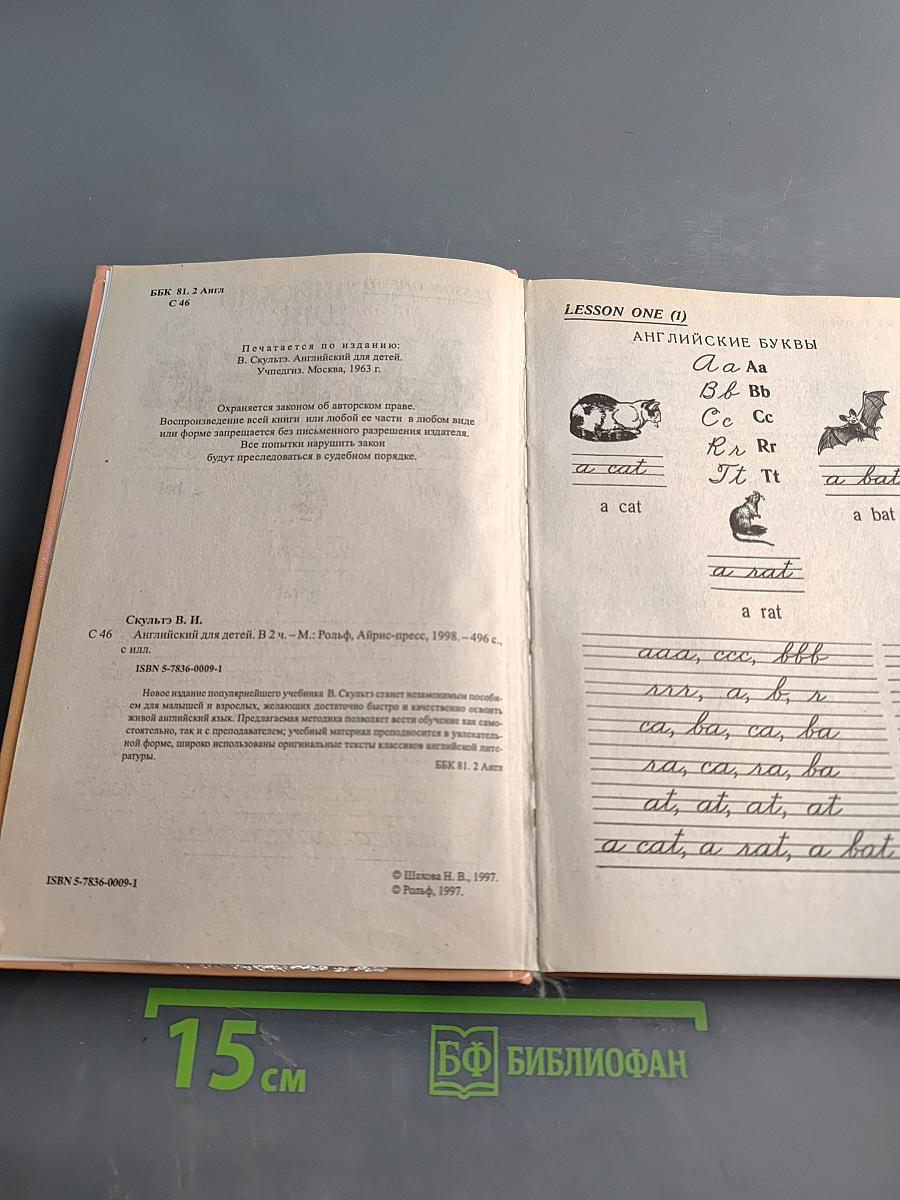 ББК 81. 2 Англ
С 46
Печатается по изданию:
В. Скультэ. Английский для детей.
Учпедгиз. Москва, 1963 г.
Охраняется законом об авторском праве.
Воспроизведение всей книги или любой ее части в любом виде
или форме запрещается без письменного разрешения издателя.
Все попытки нарушить закон
будут преследоваться в судебном порядке.
Скультэ В. И.
С 46 Английский для детей. В 2 ч. – М.: Рольф, Айрис-пресс, 1998. – 496 с.,
с илл.
ISBN 5-7836-0009-1
Новое издание популярнейшего учебника В. Скультэ станет незаменимым пособи-
ем для малышей и взрослых, желающих достаточно быстро и качественно освоить
живой английский язык. Предлагаемая методика позволяет вести обучение как само-
стоятельно, так и с преподавателем; учебный материал преподносится в увлекатель-
ной форме, широко использованы оригинальные тексты классиков английской лите-
ратуры.
ББК 81. 2 Англ
ISBN 5-7836-0009-1
© Шахова Н. В., 1997.
© Рольф, 1997.
LESSON ONE (1)
АНГЛИЙСКИЕ БУКВЫ
Aa Aa
Bb Bb
Cc Cc
Rr Rr
Tt Tt
a cat
a cat
a bat
a bat
a rat
a rat
aaa, ccc, bbb
rrr, a, b, r
ca, ba, ca, ba
ra, ca, ra, ba
at, at, at, at
a cat, a rat, a bat
15 см
БФ БИБЛИОФАН